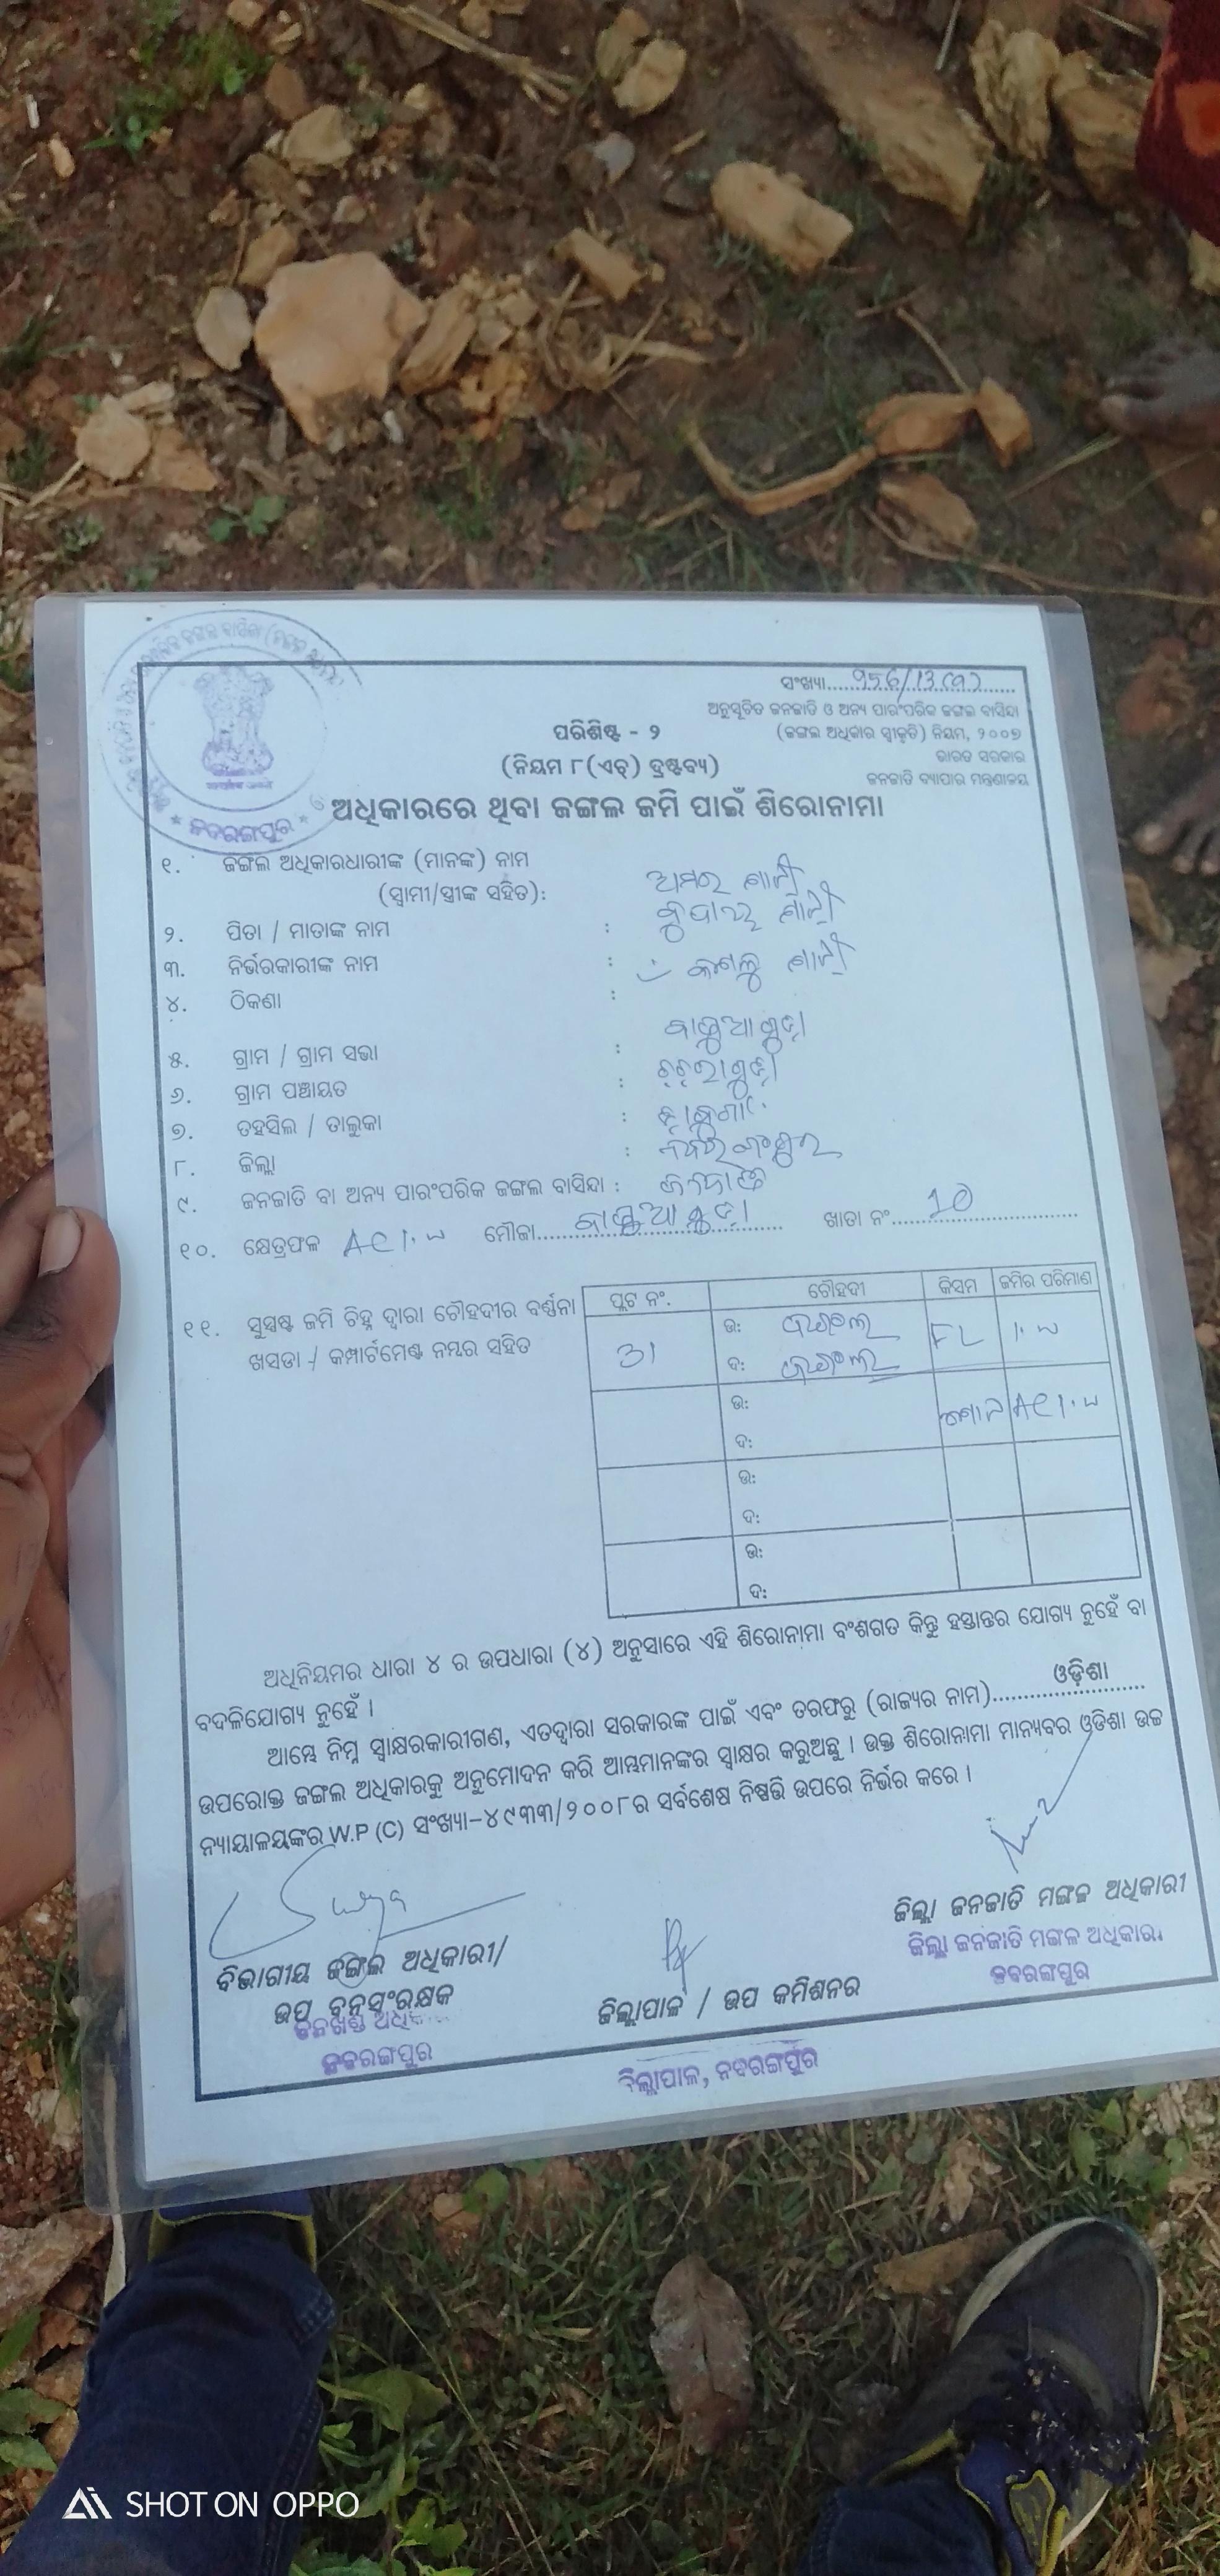 ସଂଖ୍ୟା.....956/13(୩).....
ଅନୁସୂଚିତ ଜନଜାତି ଓ ଅନ୍ୟ ପାରଂପରିକ ଜଙ୍ଗଲ ବାସିନ୍ଦା
ପରିଶିଷ୍ଟ - ୨
(ଜଙ୍ଗଲ ଅଧିକାର ସ୍ୱୀକୃତି) ନିୟମ, ୨୦୦୭
(ନିୟମ ୮(ଏଚ୍) ଦ୍ରଷ୍ଟବ୍ୟ)
ଭାରତ ସରକାର
ଜନଜାତି ବ୍ୟାପାର ମନ୍ତ୍ରଣାଳୟ
ନବରଙ୍ଗପୁର
ଅଧିକାରରେ ଥିବା ଜଙ୍ଗଲ ଜମି ପାଇଁ ଶିରୋନାମା
୧. ଜଙ୍ଗଲ ଅଧିକାରଧାରୀଙ୍କ (ମାନଙ୍କ) ନାମ
(ସ୍ୱାମୀ/ସ୍ତ୍ରୀଙ୍କ ସହିତ):
୨. ପିତା / ମାତାଙ୍କ ନାମ :
୩. ନିର୍ଭରକାରୀଙ୍କ ନାମ :
୪. ଠିକଣା :
୫. ଗ୍ରାମ / ଗ୍ରାମ ସଭା :
୬. ଗ୍ରାମ ପଞ୍ଚାୟତ :
୭. ତହସିଲ / ତାଲୁକା :
୮. ଜିଲ୍ଲା : ନବରଙ୍ଗପୁର
୯. ଜନଜାତି ବା ଅନ୍ୟ ପାରଂପରିକ ଜଙ୍ଗଲ ବାସିନ୍ଦା : ଜନଜାତି
୧୦. କ୍ଷେତ୍ରଫଳ ମୌଜା............ ଖାତା ନଂ.....10.....
୧୧. ସୁସ୍ପଷ୍ଟ ଜମି ଚିହ୍ନ ଦ୍ୱାରା ଚୌହଦୀର ବର୍ଣ୍ଣନା
ଖସଡା / କମ୍ପାର୍ଟମେଣ୍ଟ ନମ୍ବର ସହିତ
ପ୍ଲଟ ନଂ. ଚୌହଦୀ କିସମ ଜମିର ପରିମାଣ
31 ଉ: ଜଙ୍ଗଲ FL
ଦ: ଜଙ୍ଗଲ
ଉ:
ଦ:
ଉ:
ଦ:
ଉ:
ଦ:
ଅଧିନିୟମର ଧାରା ୪ ର ଉପଧାରା (୪) ଅନୁସାରେ ଏହି ଶିରୋନାମା ବଂଶଗତ କିନ୍ତୁ ହସ୍ତାନ୍ତର ଯୋଗ୍ୟ ନୁହେଁ ବା
ବଦଳିଯୋଗ୍ୟ ନୁହେଁ ।
ଆମ୍ଭେ ନିମ୍ନ ସ୍ୱାକ୍ଷରକାରୀଗଣ, ଏତଦ୍ଦ୍ୱାରା ସରକାରଙ୍କ ପାଇଁ ଏବଂ ତରଫରୁ (ରାଜ୍ୟର ନାମ).....ଓଡ଼ିଶା.....
ଉପରୋକ୍ତ ଜଙ୍ଗଲ ଅଧିକାରକୁ ଅନୁମୋଦନ କରି ଆମ୍ଭମାନଙ୍କର ସ୍ୱାକ୍ଷର କରୁଅଛୁ । ଉକ୍ତ ଶିରୋନାମା ମାନ୍ୟବର ଓଡିଶା ଉଚ୍ଚ
ନ୍ୟାୟାଳୟଙ୍କର W.P (C) ସଂଖ୍ୟା-୪୯୩୩/୨୦୦୮ର ସର୍ବଶେଷ ନିଷ୍ପତ୍ତି ଉପରେ ନିର୍ଭର କରେ ।
ବିଭାଗୀୟ ଜଙ୍ଗଲ ଅଧିକାରୀ/
ଉପ ବନସଂରକ୍ଷକ
ନବରଙ୍ଗପୁର
ଜିଲ୍ଲାପାଳ / ଉପ କମିଶନର
ଜିଲ୍ଲାପାଳ, ନବରଙ୍ଗପୁର
ଜିଲ୍ଲା ଜନଜାତି ମଙ୍ଗଳ ଅଧିକାରୀ
ଜିଲ୍ଲା ଜନଜାତି ମଙ୍ଗଳ ଅଧିକାରୀ
ନବରଙ୍ଗପୁର
SHOT ON OPPO